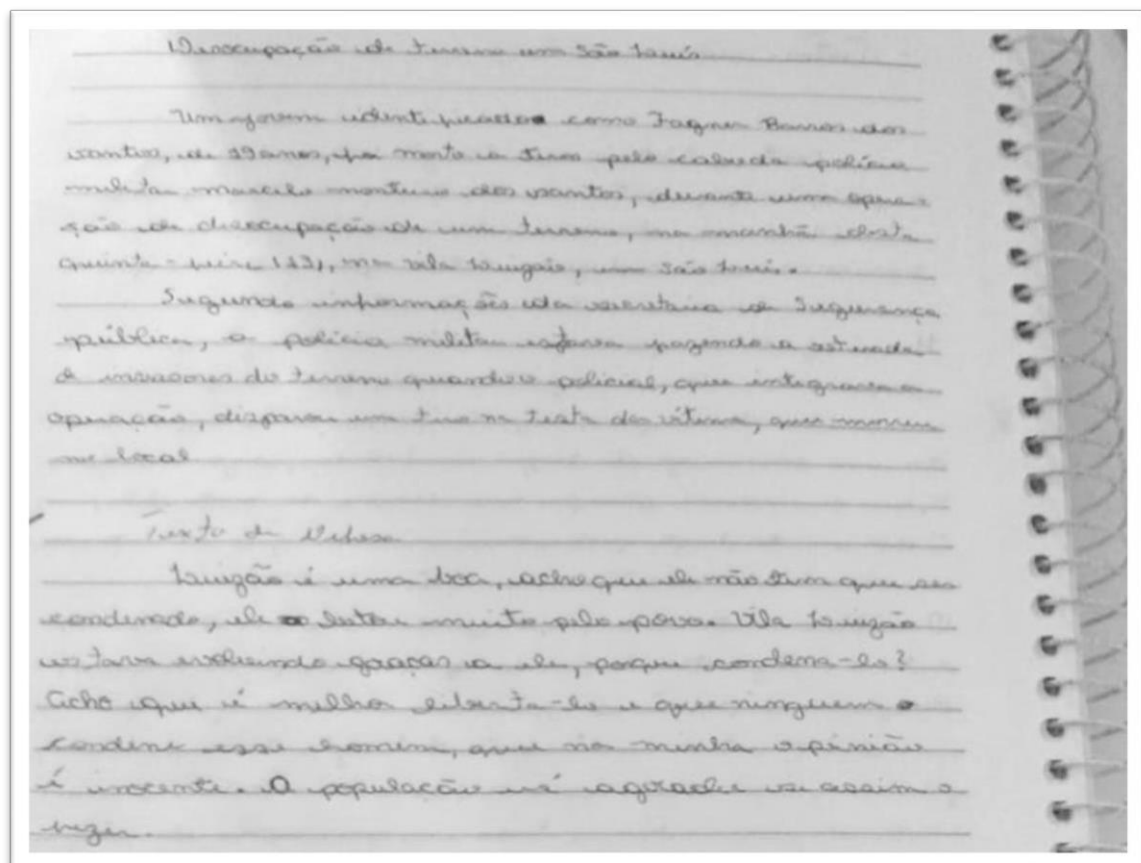 Desocupação de terreno em São Luís
Um jovem identificado como Fagner Barros dos
santos, de 19 anos, foi morto a tiros pelo cabo da polícia
militar marcelo monteiro dos santos, durante uma opera-
ção de desocupação de um terreno, na manhã desta
quinta-feira (13), na vila luizão, em São Luís.
Segundo informações da secretaria de Segurança
pública, a polícia militar estava fazendo a retirada
de invasores do terreno quando o policial, que integrava a
operação, disparou um tiro na testa da vítima, que morreu
no local
Texto de Defesa
Luizão é uma boa, acho que ele não tem que ser
condenado, ele lutou muito pelo povo. Vila Luizão
estava evoluindo graças a ele, porque condena-lo?
Acho que é melhor liberta-lo e que ninguem
condene esse homem, que na minha opinião
é inocente. A população irá agradece se assim o
fizer.